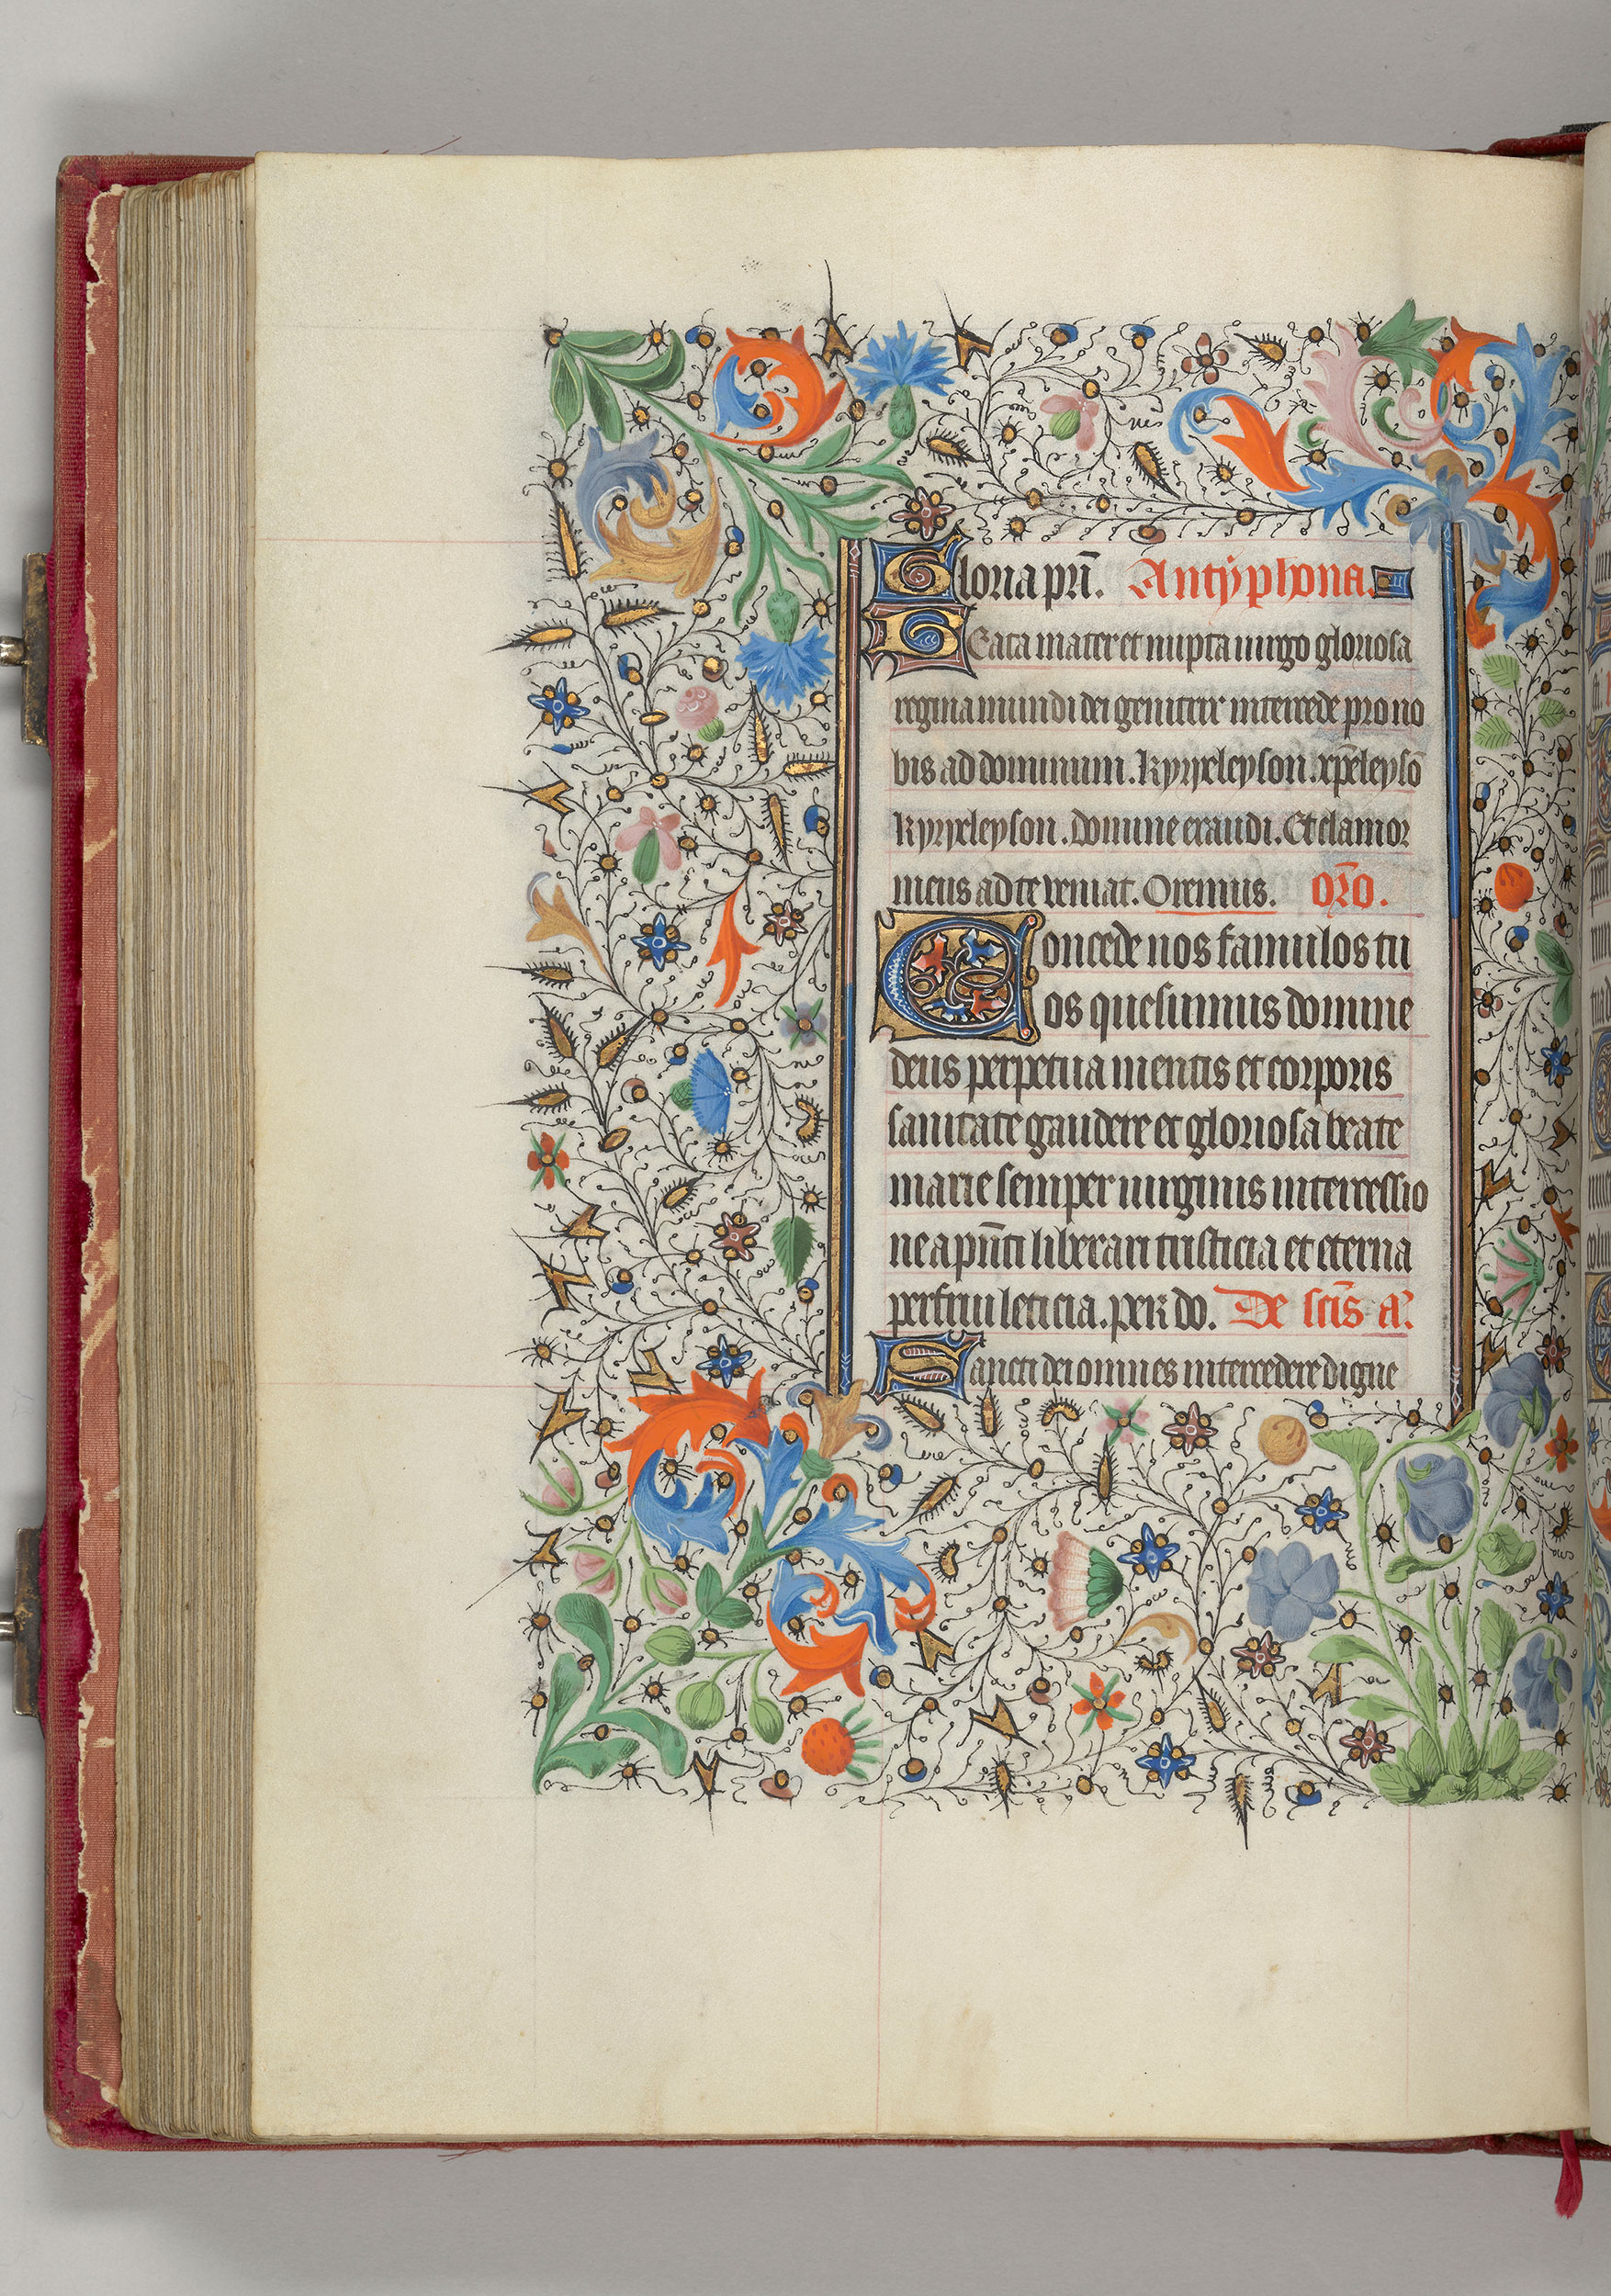 Gloria pri̅. Antÿphona.
Beata mater et nupta uirgo gloriosa
regina mundi dei genitrix intercede pro no
bis ad dominum. Kyrieleyson. xp̅eleyso̅
Kyrieleyson. Domine exaudi. Et clamor
meus ad te veniat. Oremus. Oro̅.
Concede nos famulos tu
os quesumus domine
deus perpetua mentis et corporis
sanitate gaudere et gloriosa beate
marie semper uirginis intercessio
ne a pn̅ti liberari tristicia et eterna
perfrui leticia. per do. De sc̅is a᷎.
Sancti dei omnes intercedere digne